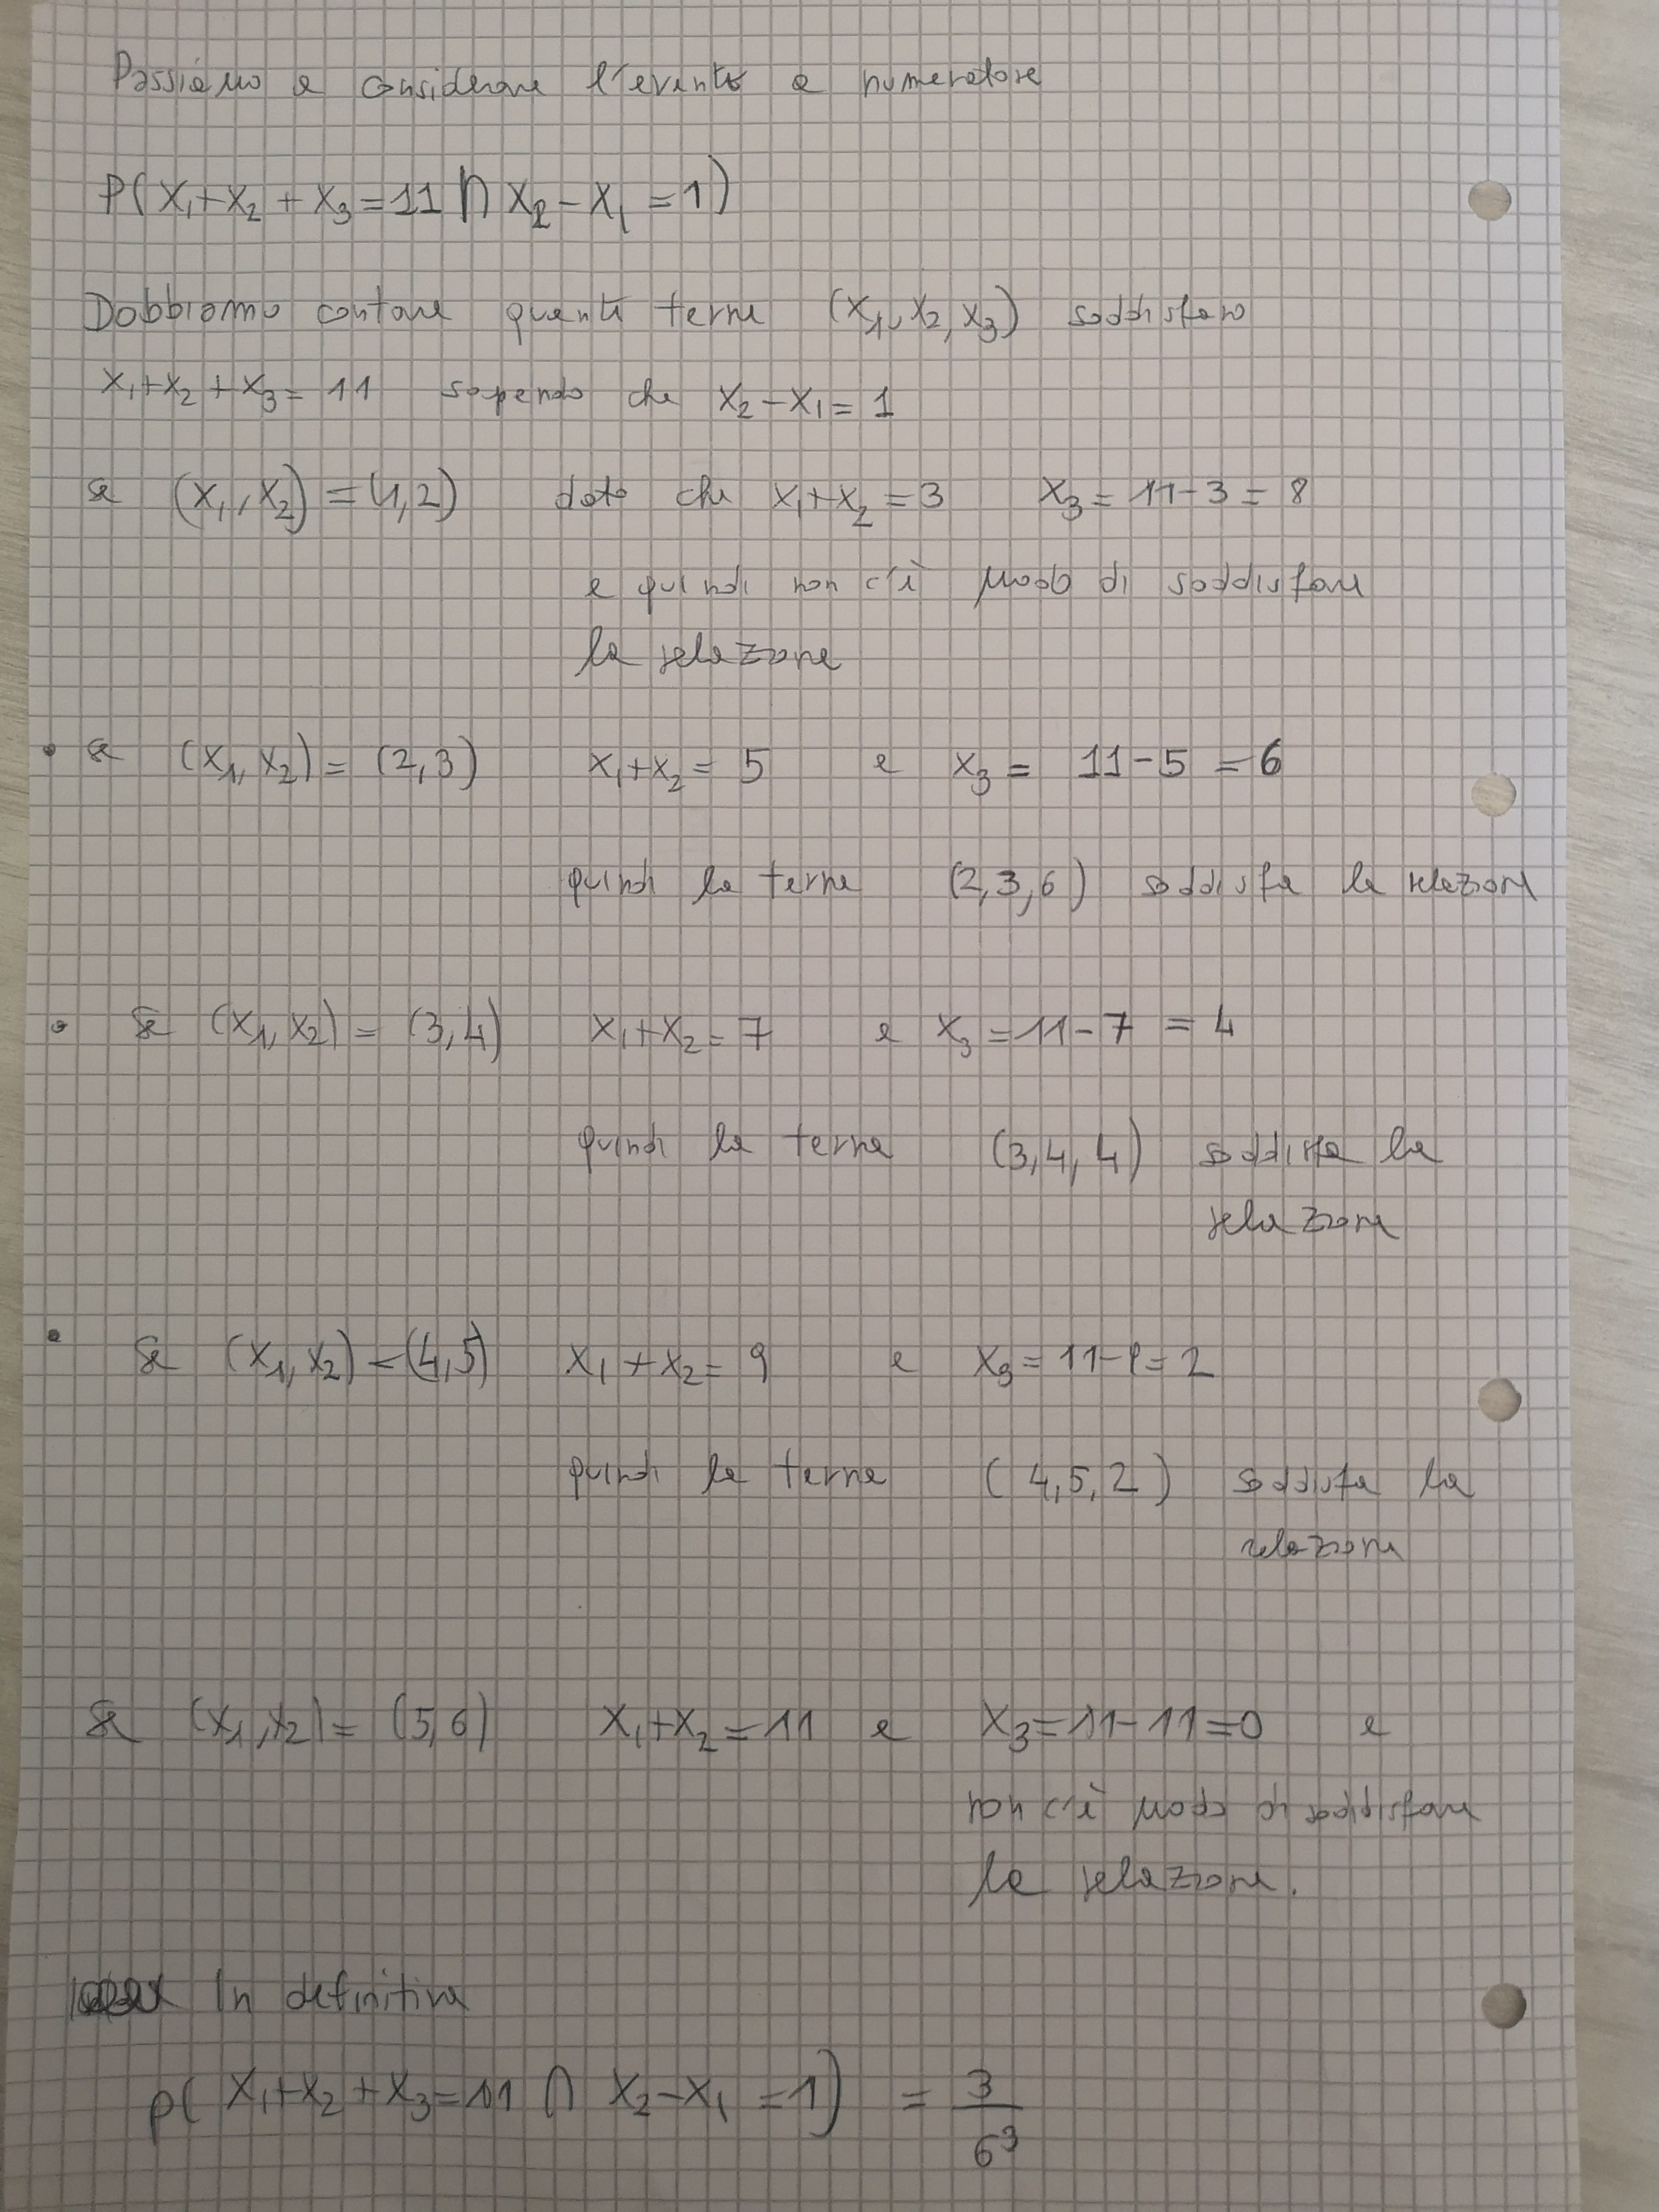 Passiamo a considerare l'evento a numeratore
P(X₁+X₂+X₃=11 ∩ X₂-X₁=1)
Dobbiamo contare quante terne (X₁,X₂,X₃) soddisfano
X₁+X₂+X₃=11 sapendo che X₂-X₁=1
se (X₁,X₂)=(1,2) dato che X₁+X₂=3 X₃=11-3=8
e quindi non c'è modo di soddisfare
la relazione
• se (X₁,X₂)=(2,3) X₁+X₂=5 e X₃=11-5=6
quindi la terna (2,3,6) soddisfa la relazione
• se (X₁,X₂)=(3,4) X₁+X₂=7 e X₃=11-7=4
quindi la terna (3,4,4) soddisfa la
relazione
• se (X₁,X₂)=(4,5) X₁+X₂=9 e X₃=11-9=2
quindi la terna (4,5,2) soddisfa la
relazione
se (X₁,X₂)=(5,6) X₁+X₂=11 e X₃=11-11=0 e
non c'è modo di soddisfare
la relazione.
In definitiva
P(X₁+X₂+X₃=11 ∩ X₂-X₁=1) = 3/6³